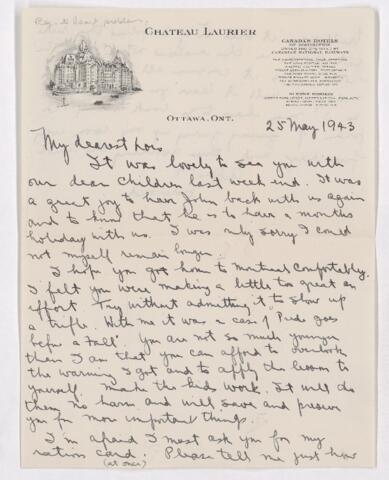 Beg. of heart problem.
CHATEAU LAURIER
CANADA'S HOTELS
OF DISTINCTION
CANADIAN NATIONAL RAILWAYS
OTTAWA, ONT.
25 May 1943
My dearest Lois
It was lovely to see you with
our dear children last week end. It was
a great joy to have John back with us again
and to know that he is to have a months
holiday with us. I was only sorry I could
not myself remain longer.
I hope you got home to Montreal comfortably.
I felt you were making a little too great an
effort. Try without admitting it to slow up
a trifle. With me it was a case of 'Pride goes
before a fall'. You are not so much younger
than I am that you can afford to overlook
the warning I got and to apply the lesson to
yourself. Make the kids work. It will do
them no harm and will save and preserve
you for more important things.
I'm afraid I must ask you for my
ration card. Please tell me just how
(at once)